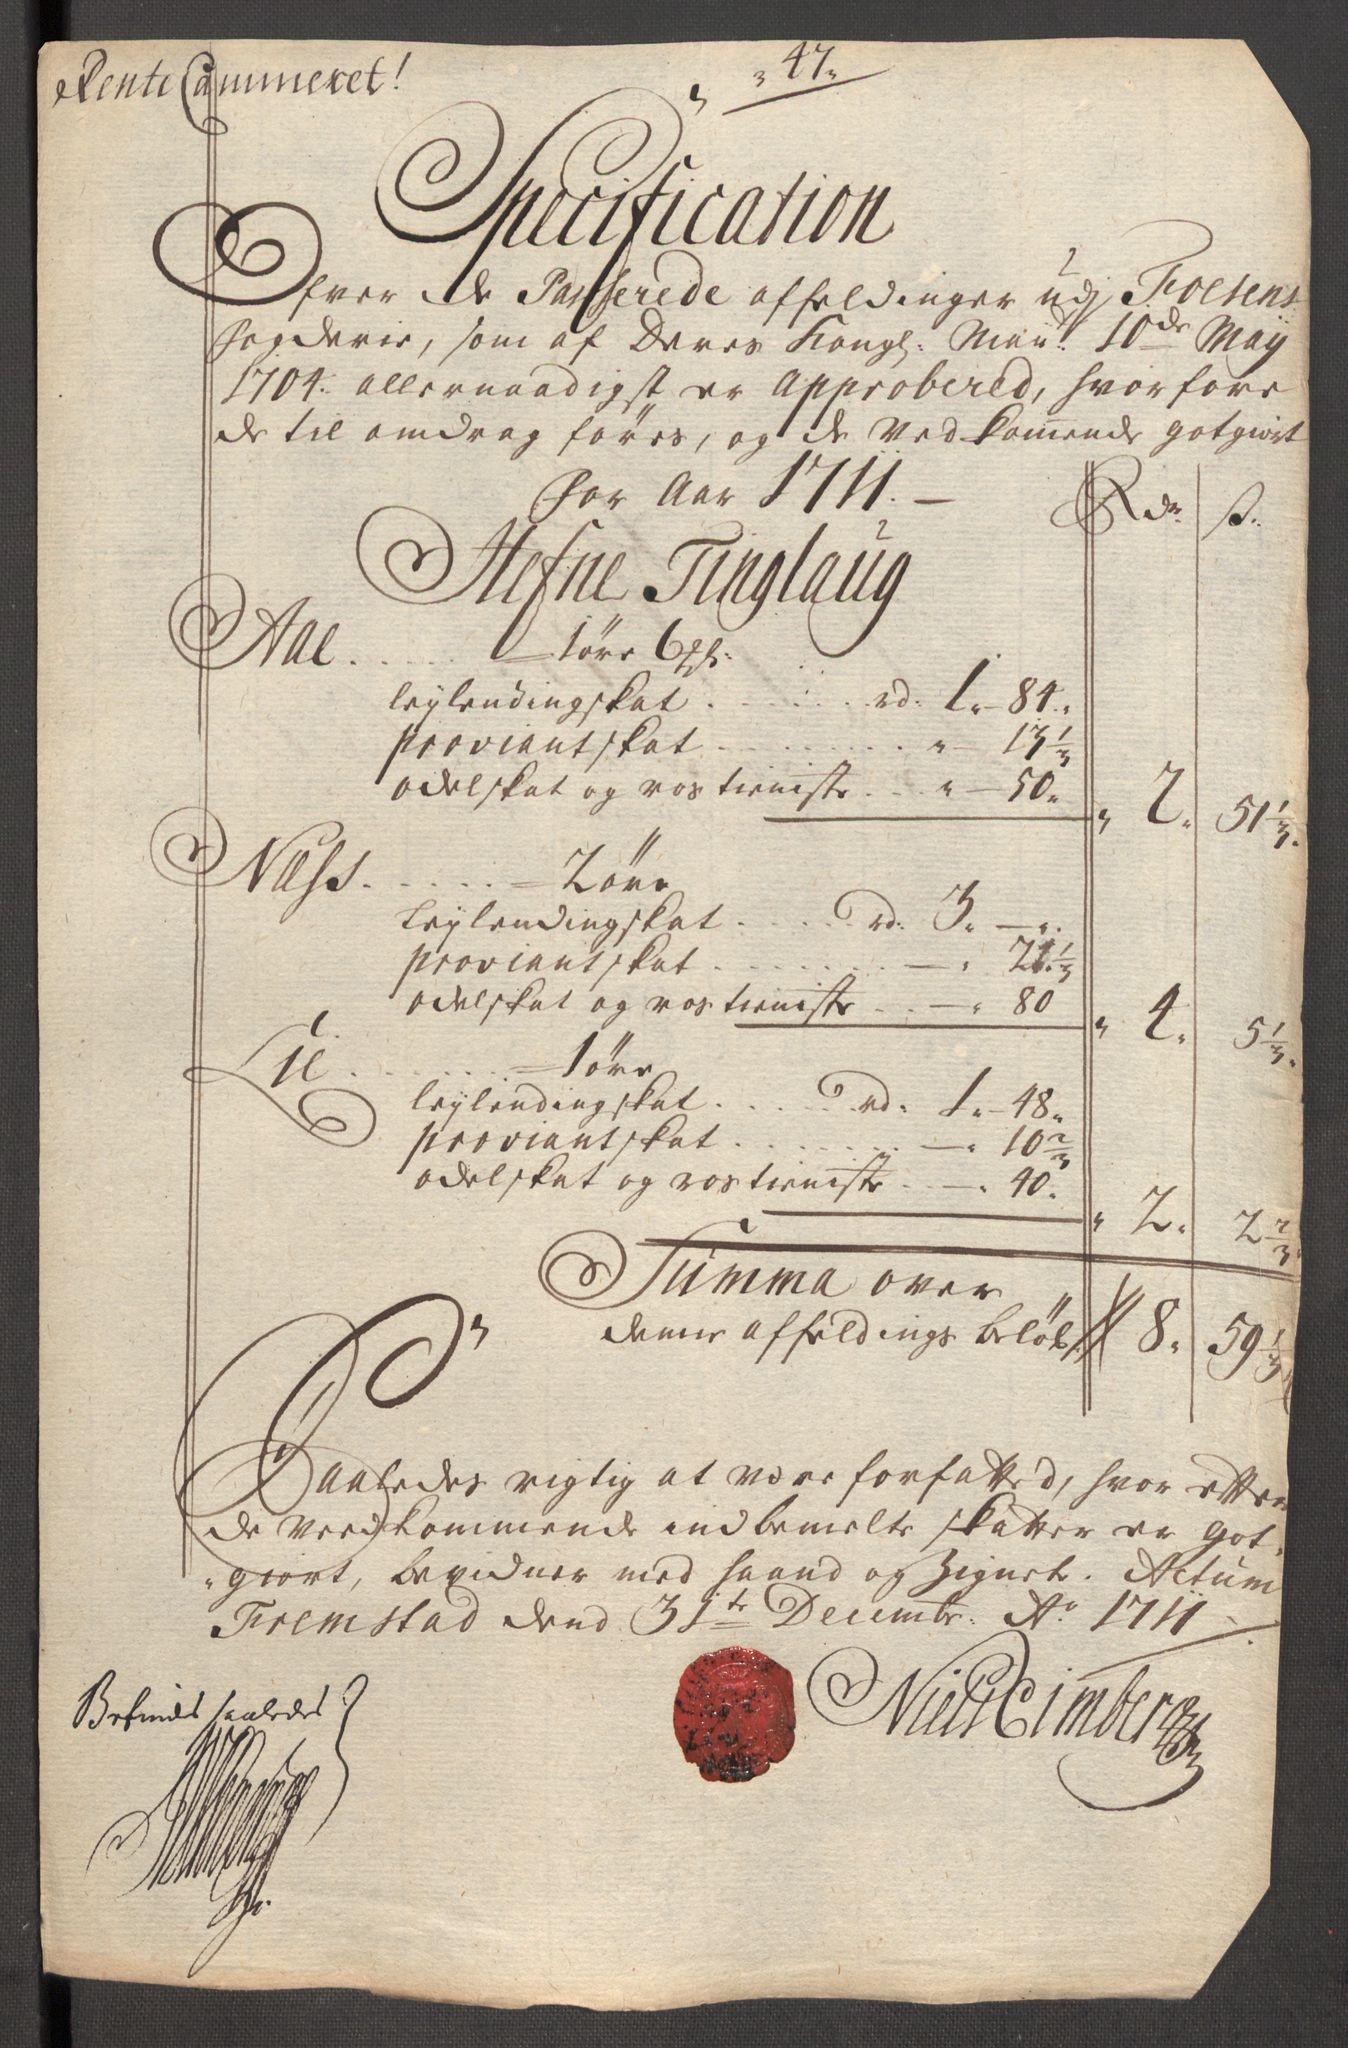 Rente Cammeret!
"47"
Specification
Ofver de Passerede affeldinger udj Foesens
fogderie, som af Deres Kongl: May:t 10de May
1704. allernaadigst er Approbered, hvorfore
de til omdrag føres, og de vedkommende gotgiort
for Aar 1711. —
Rdr. s.
Hefne Tinglaug
Aae . . . . . = 1 øre 6 
leylendingskat . . . . . rd: 1 " 84 "
proviantskat . . . . . " — 13 1/3
odelskat og rostieniste . . " — 50 " " 2 " 51 1/3 "
Næss . . . . . = 2 øre
leylendingskat . . . . . rd: 3 " — "
proviantskat . . . . . — " 21 1/3
odelskat og rostieniste . . — " 80 " 4 " 5 1/3 "
Lie . . . . . = 1 øre
leylendingskat . . . . . rd: 1 " 48 "
proviantskat . . . . . — " 10 2/3
odelskat og rostieniste . . — " 40 " " 2 " 2 2/3 "
Summa over
denne affeldings beløb 8 " 59 1/3
Saaledes rigtig at være forfatted, hvor efter
de vedkommende indbemelte skatter er got-
giort, bevidner med haand og Zignet. Actum
Fremstad dend 31te Decembr: Ao 1711
Niels Cimberg
Befindes saaledes